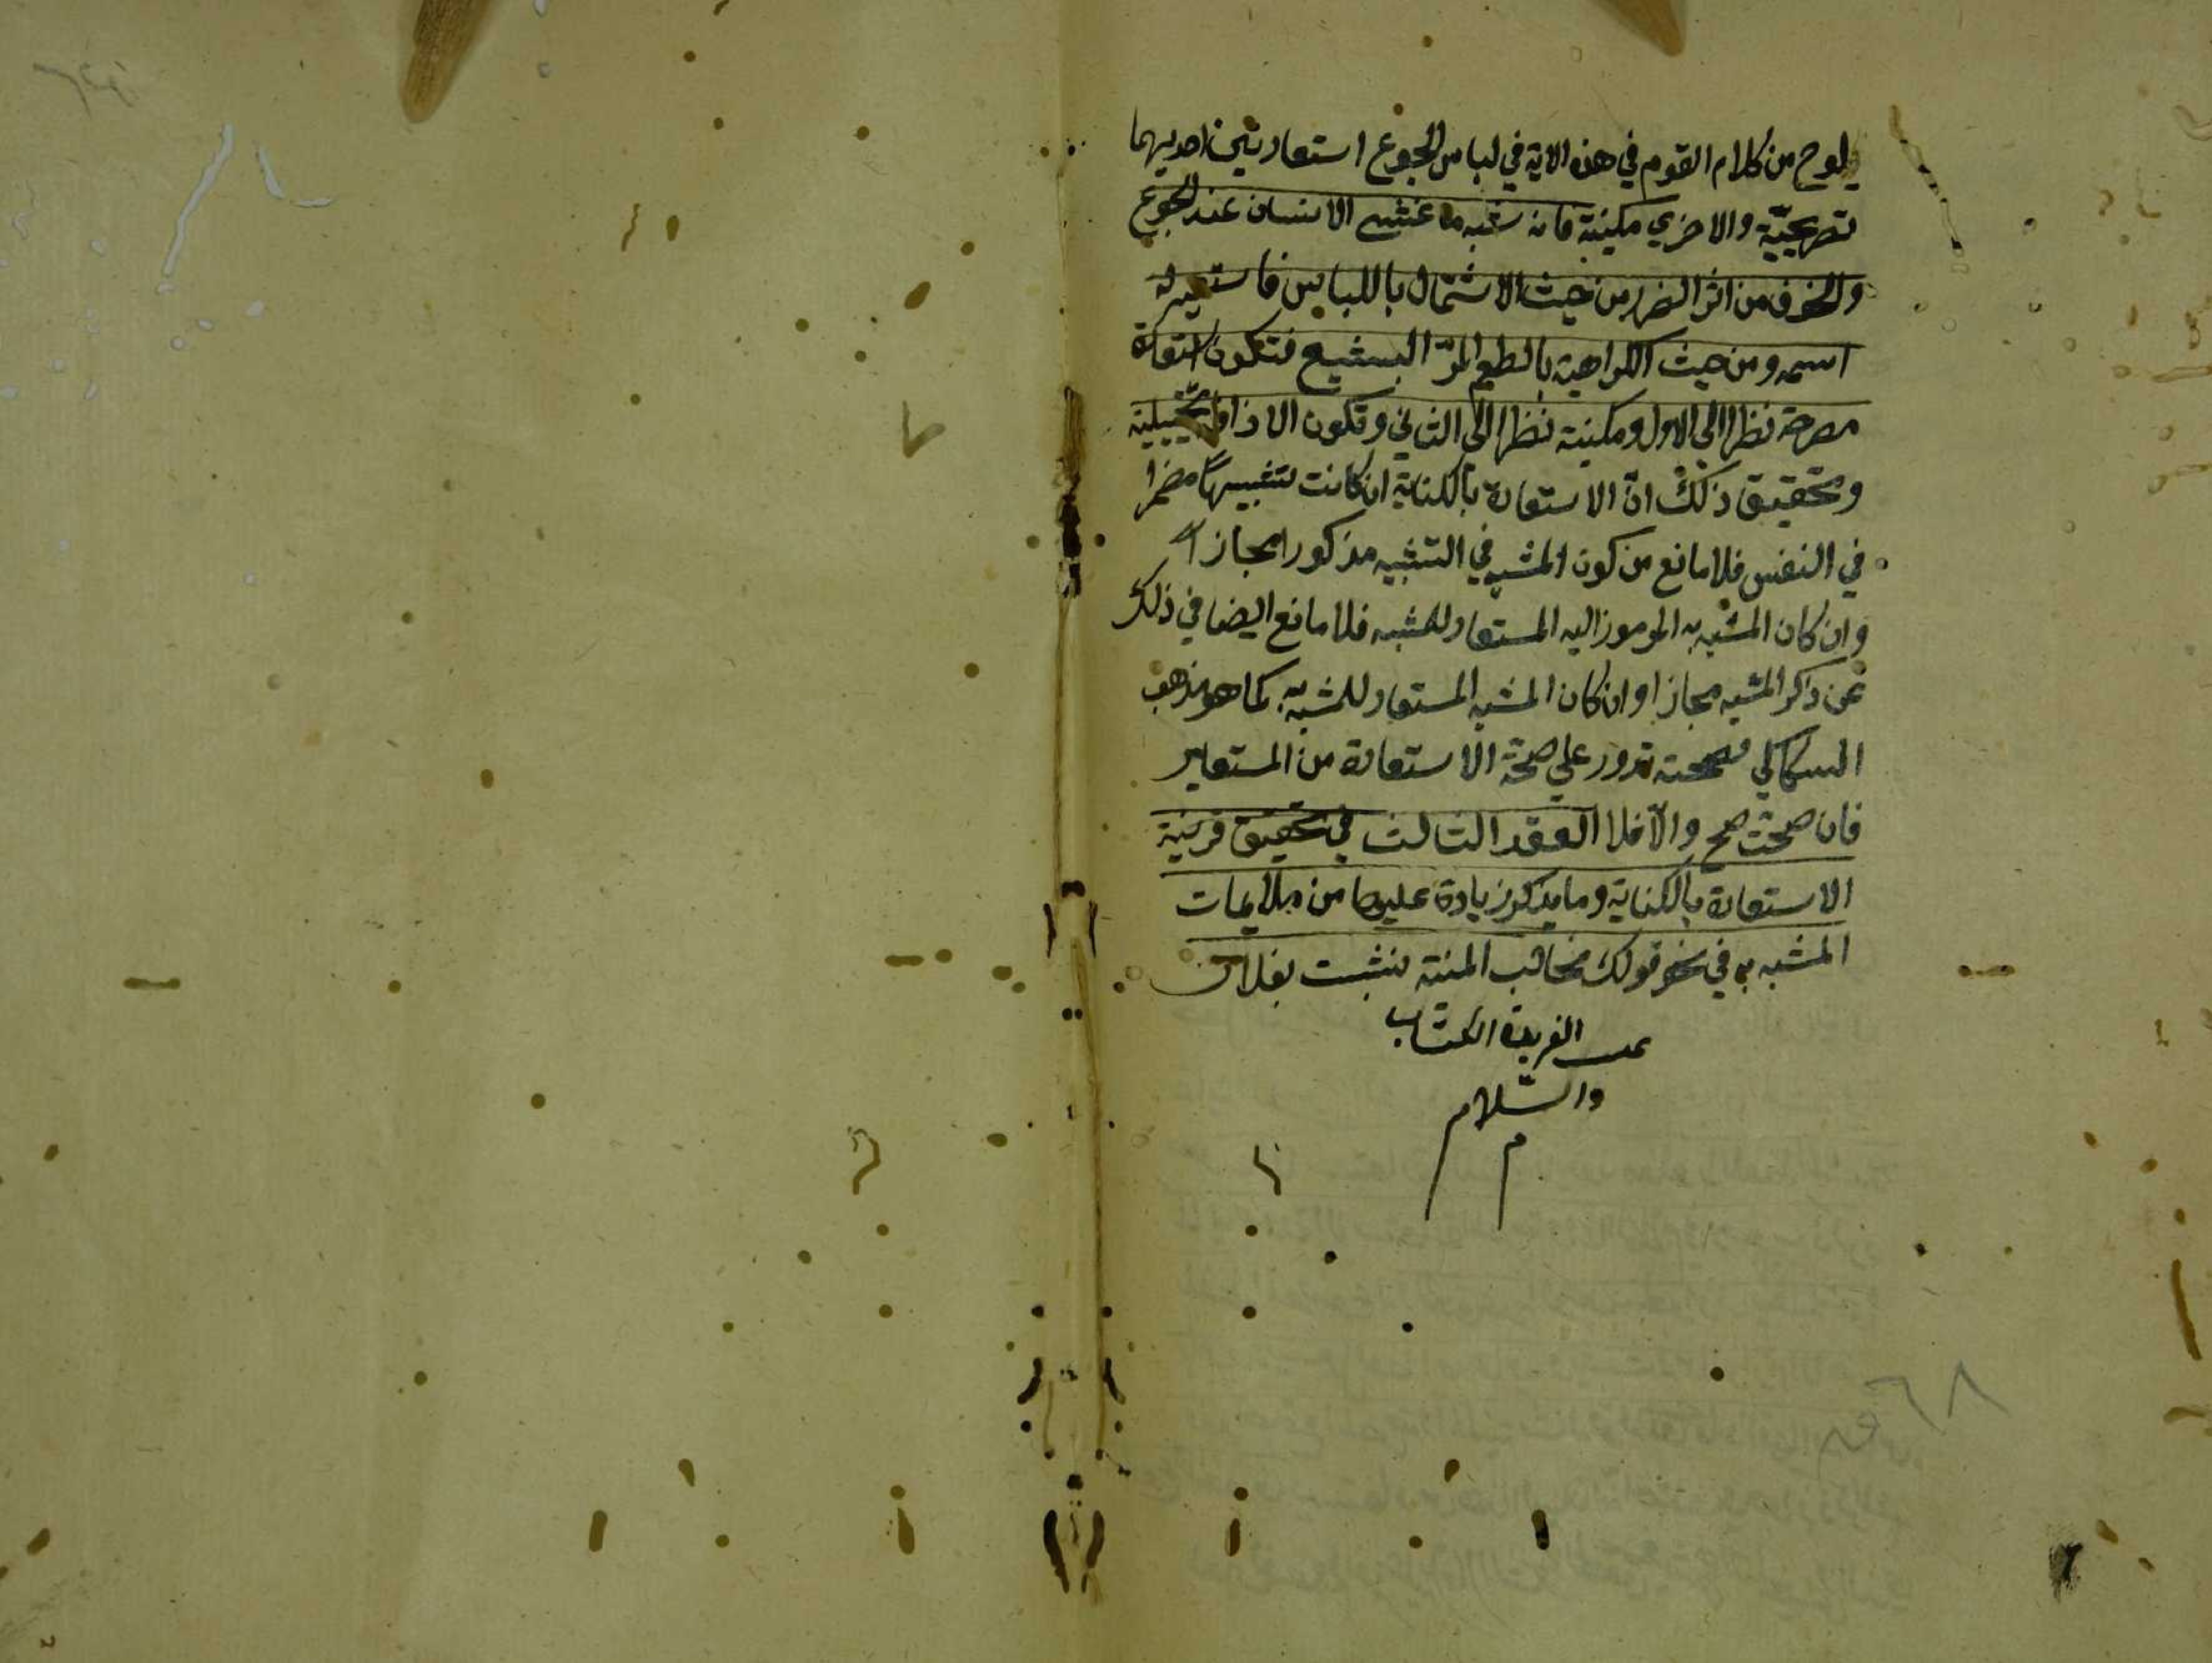 يلوح من كلام القوم في هذه الاية في لباس الجوع استعارتين احديهما
تصريحيّة والاخري مكينة فانه شبه ما غشي الانسان عند الجوع
والخوف من اثر الضرر من حيث الاشتمال باللباس فاستعير له
اسمه ومن حيث الكراهية بالطعم المرّ البشيع فتكون استعارة
مصرحة نظرا الي الاول ومكينة نظرا الي الثاني وتكون الاذاقة تخييلية
وتحقيق ذلك انّ الاستعارة بالكناية ان كانت تشبيهاً مضمرا
في النفس فلا مانع من كون المشبه في التشبيه مذكورا مجازا
وان كان المشبه به المرموز اليه المستعار للمشبه فلا مانع ايضا في ذلك
عن ذكر المشبه مجازا وان كان المشبه المستعار للمشبه به كما هو مذهب
السكاكي فصحته تدور علي صحة الاستعارة من المستعير
فان صحت صح والّا فلا العقد الثالث في تحقيق قرينة
الاستعارة بالكناية وما يذكر زيادة عليها من ملايمات
المشبه به في نحو قولك مخالب المنية نشبت بفلان
الفريدة الكتاب
والسّلام
م
٨٦